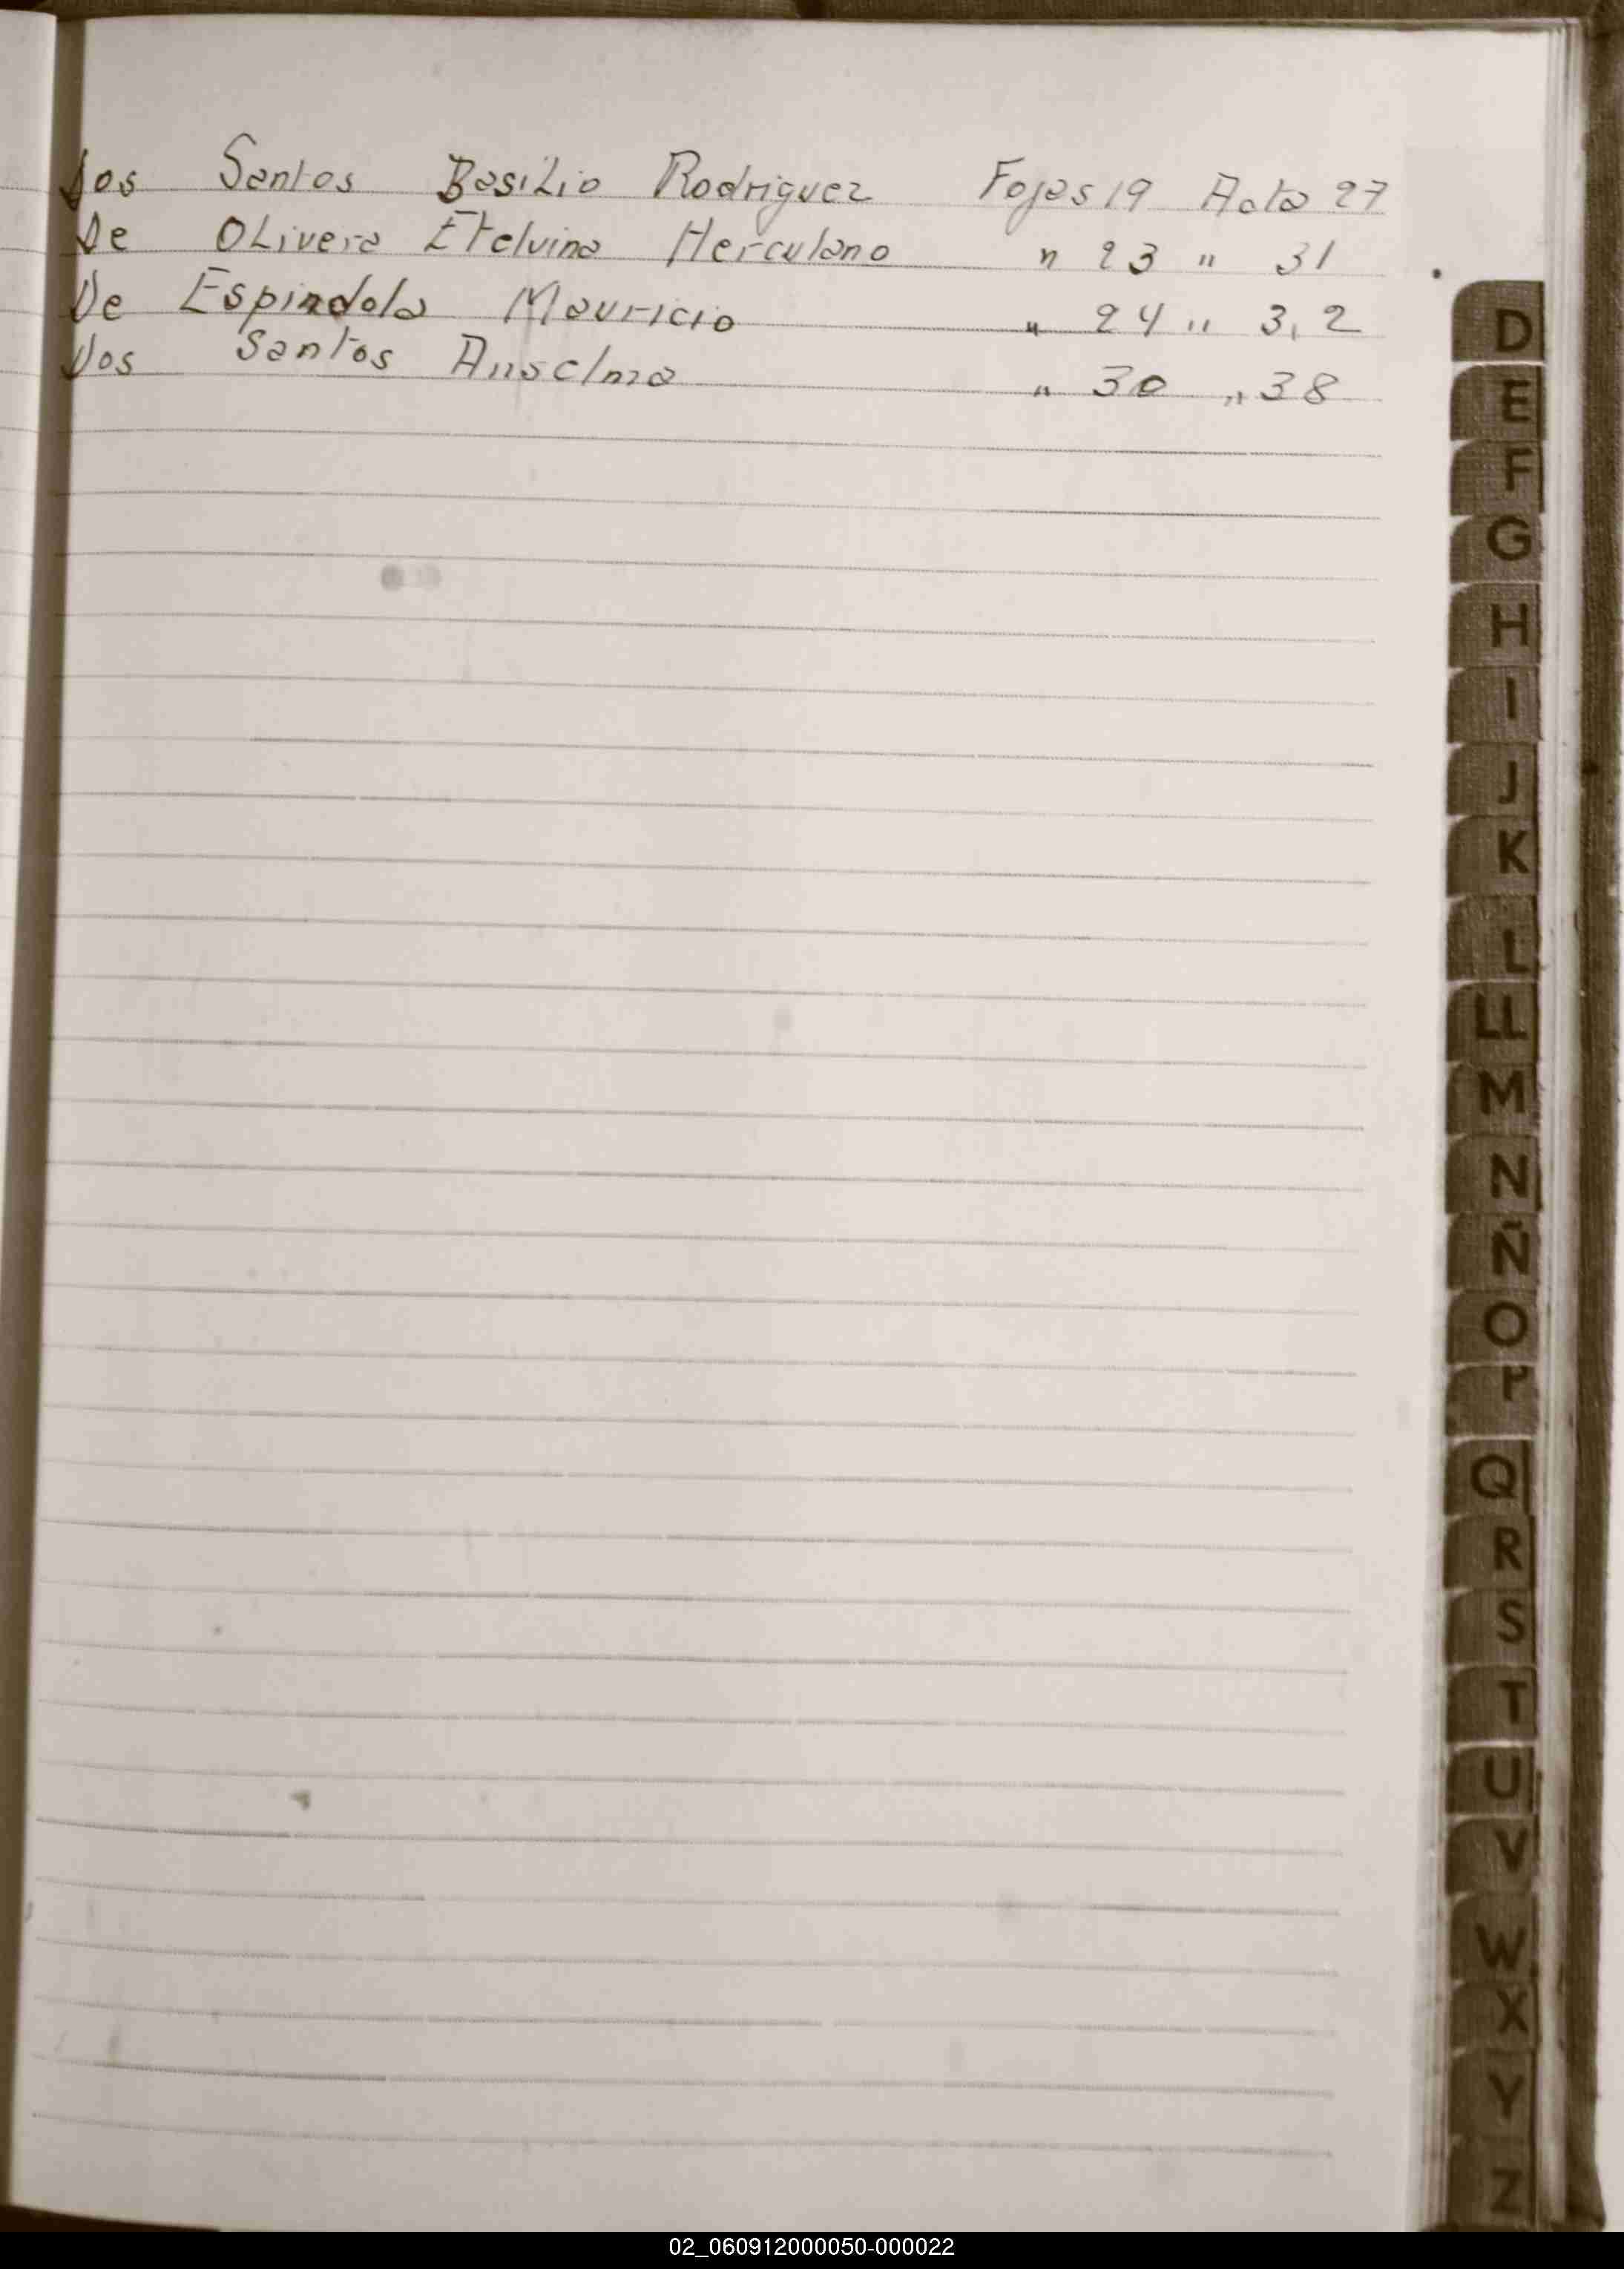 Dos Santos Basilio Rodriguez Fojas 19 Acta 27
De Olivera Etelvina Herculano " 23 " 31
De Espindola Mauricio " 24 " 32
Dos Santos Anselmo " 30 " 38
D
E
F
G
H
I
J
K
L
LL
M
N
Ñ
O
P
Q
R
S
T
U
V
W
X
Y
Z
02_060912000050-000022